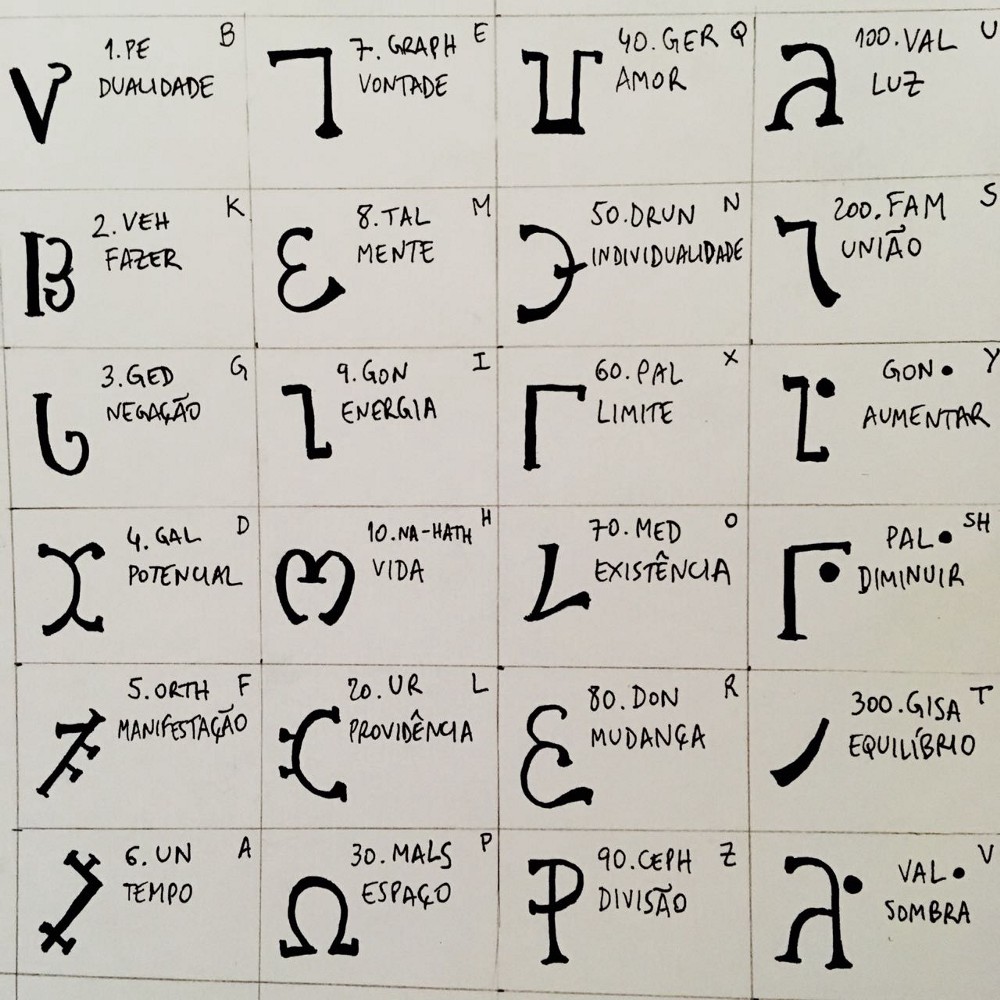 1. PE B
DUALIDADE
7. GRAPH E
VONTADE
40. GER Q
AMOR
100. VAL U
LUZ
2. VEH K
FAZER
8. TAL M
MENTE
50. DRUN N
INDIVIDUALIDADE
200. FAM S
UNIÃO
3. GED G
NEGAÇÃO
9. GON I
ENERGIA
60. PAL X
LIMITE
GON• Y
AUMENTAR
4. GAL D
POTENCIAL
10. NA-HATH H
VIDA
70. MED O
EXISTÊNCIA
PAL• SH
DIMINUIR
5. ORTH F
MANIFESTAÇÃO
20. UR L
PROVIDÊNCIA
80. DON R
MUDANÇA
300. GISA T
EQUILÍBRIO
6. UN A
TEMPO
30. MALS P
ESPAÇO
90. CEPH Z
DIVISÃO
VAL• V
SOMBRA